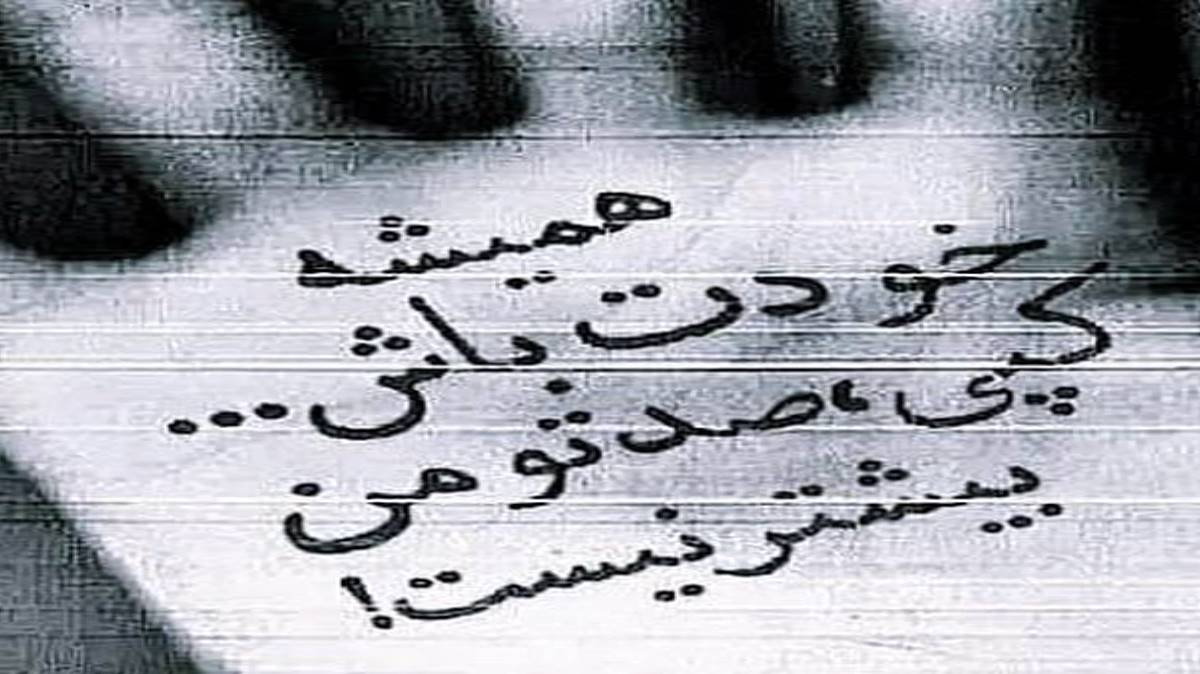 همیشه
خودت باش...
کپی، صد تومن
بیشتر نیست!